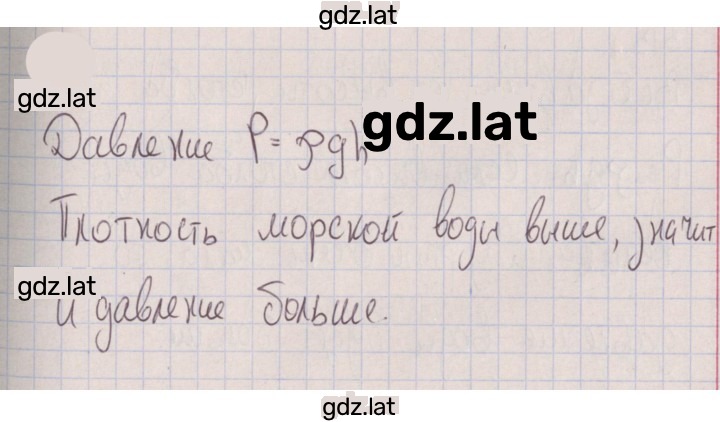 gdz.lat
gdz.lat
Давление P = ρgh
gdz.lat
Плотность морской воды выше, значит
gdz.lat
и давление больше.
gdz.lat